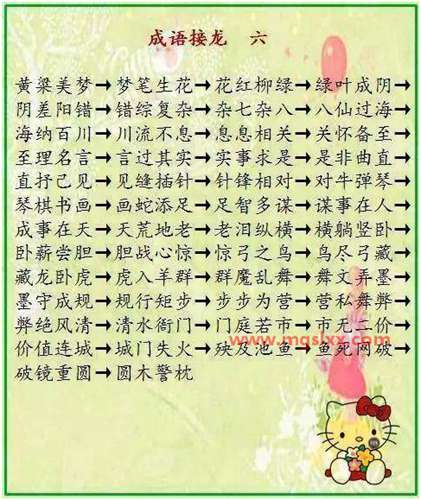 成语接龙 六
黄粱美梦→梦笔生花→花红柳绿→绿叶成阴→
阴差阳错→错综复杂→杂七杂八→八仙过海→
海纳百川→川流不息→息息相关→关怀备至→
至理名言→言过其实→实事求是→是非曲直→
直抒己见→见缝插针→针锋相对→对牛弹琴→
琴棋书画→画蛇添足→足智多谋→谋事在人→
成事在天→天荒地老→老泪纵横→横躺竖卧→
卧薪尝胆→胆战心惊→惊弓之鸟→鸟尽弓藏→
藏龙卧虎→虎入羊群→群魔乱舞→舞文弄墨→
墨守成规→规行矩步→步步为营→营私舞弊→
弊绝风清→清水衙门→门庭若市→市无二价→
价值连城→城门失火→殃及池鱼→鱼死网破→
www.mqslxx.com
破镜重圆→圆木警枕